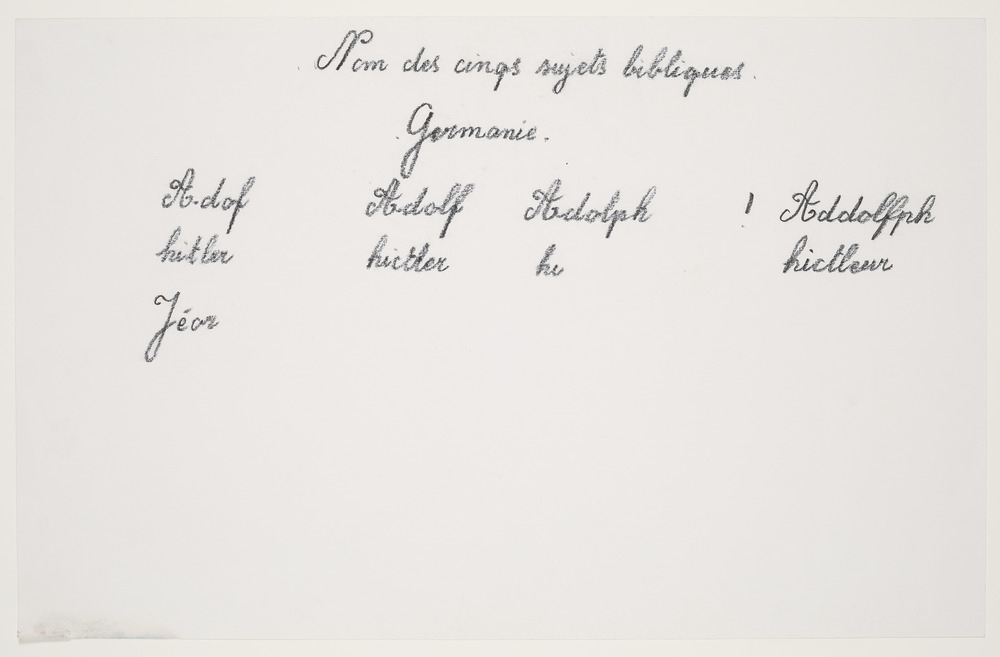 Nom des cinqs sujets bibliques.
. Germanie.
A.dof Adolf Adolph ! Addolfph
hitler hictler hi hictleur
Jéor